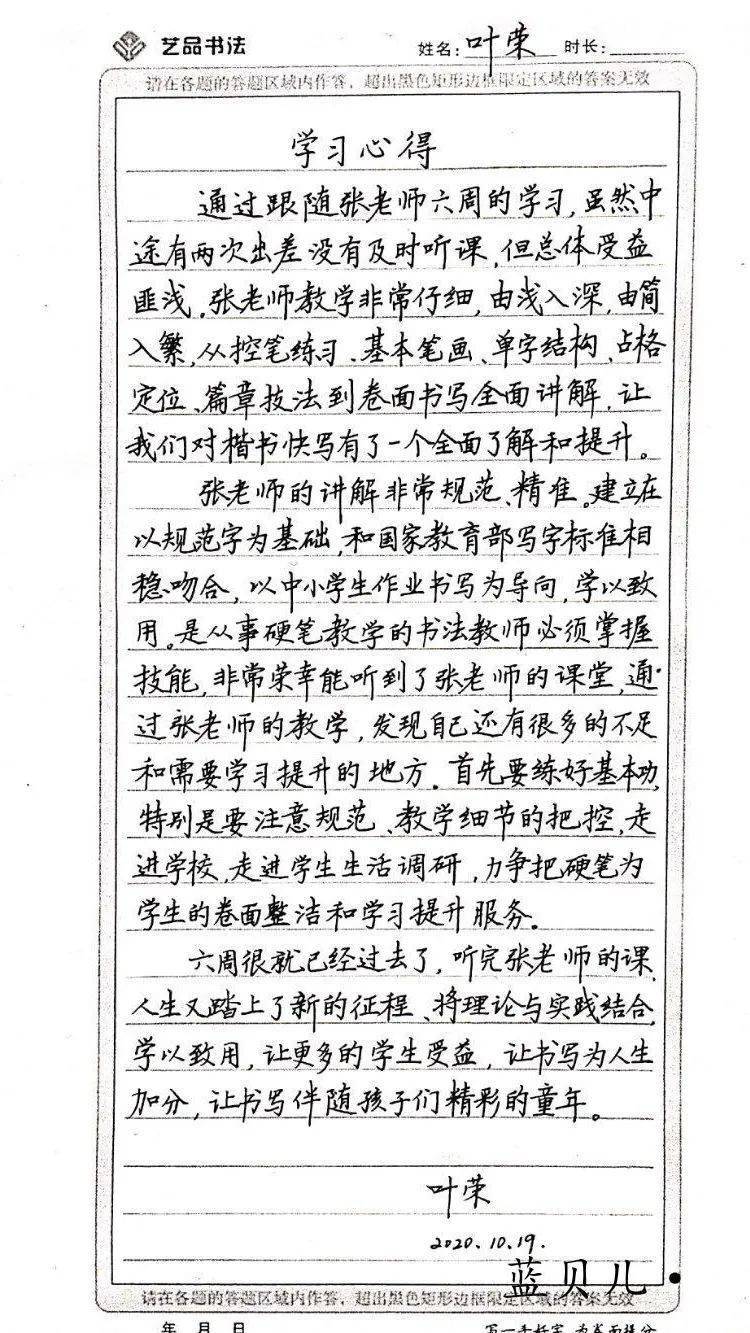 艺品书法 姓名:叶荣 时长:
请在各题的答题区域内作答，超出黑色矩形边框限定区域的答案无效
学习心得
通过跟随张老师六周的学习,虽然中
途有两次出差没有及时听课,但总体受益
匪浅.张老师教学非常仔细,由浅入深,由简
入繁,从控笔练习、基本笔画、单字结构、占格
定位、篇章技法到卷面书写全面讲解,让
我们对楷书快写有了一个全面了解和提升。
张老师的讲解非常规范、精准。建立在
以规范字为基础,和国家教育部写字标准相
稳吻合，以中小学生作业书写为导向,学以致
用。是从事硬笔教学的书法教师必须掌握
技能,非常荣幸能听到了张老师的课堂,通
过张老师的教学，发现自己还有很多的不足
和需要学习提升的地方.首先要练好基本功,
特别是要注意规范、教学细节的把控,走
进学校,走进学生生活调研,力争把硬笔为
学生的卷面整洁和学习提升服务.
六周很就已经过去了，听完张老师的课,
人生又踏上了新的征程、将理论与实践结合,
学以致用，让更多的学生受益，让书写为人生
加分，让书写伴随孩子们精彩的童年。
叶荣
2020.10.19.
蓝贝儿
请在各题的答题区域内作答，超出黑色矩形边框限定区域的答案无效
年 月 日